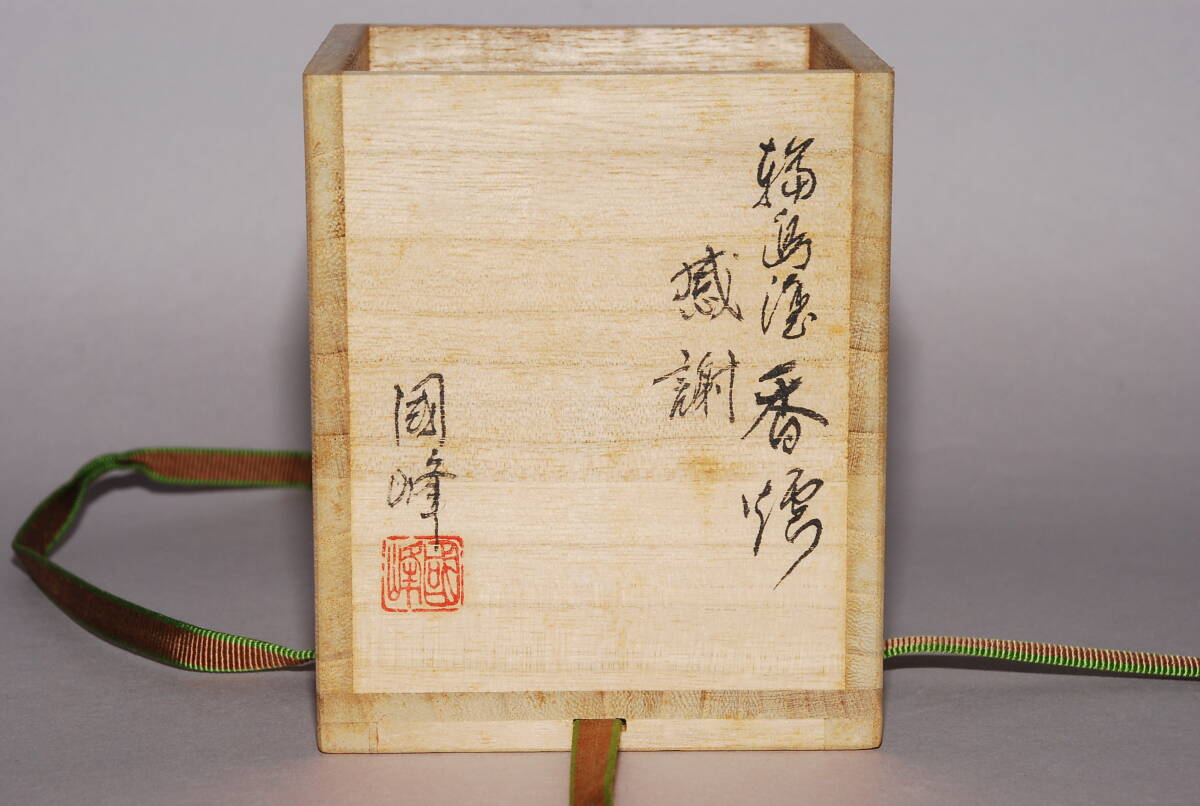 輪島塗香爐
感謝
國峰
國峰